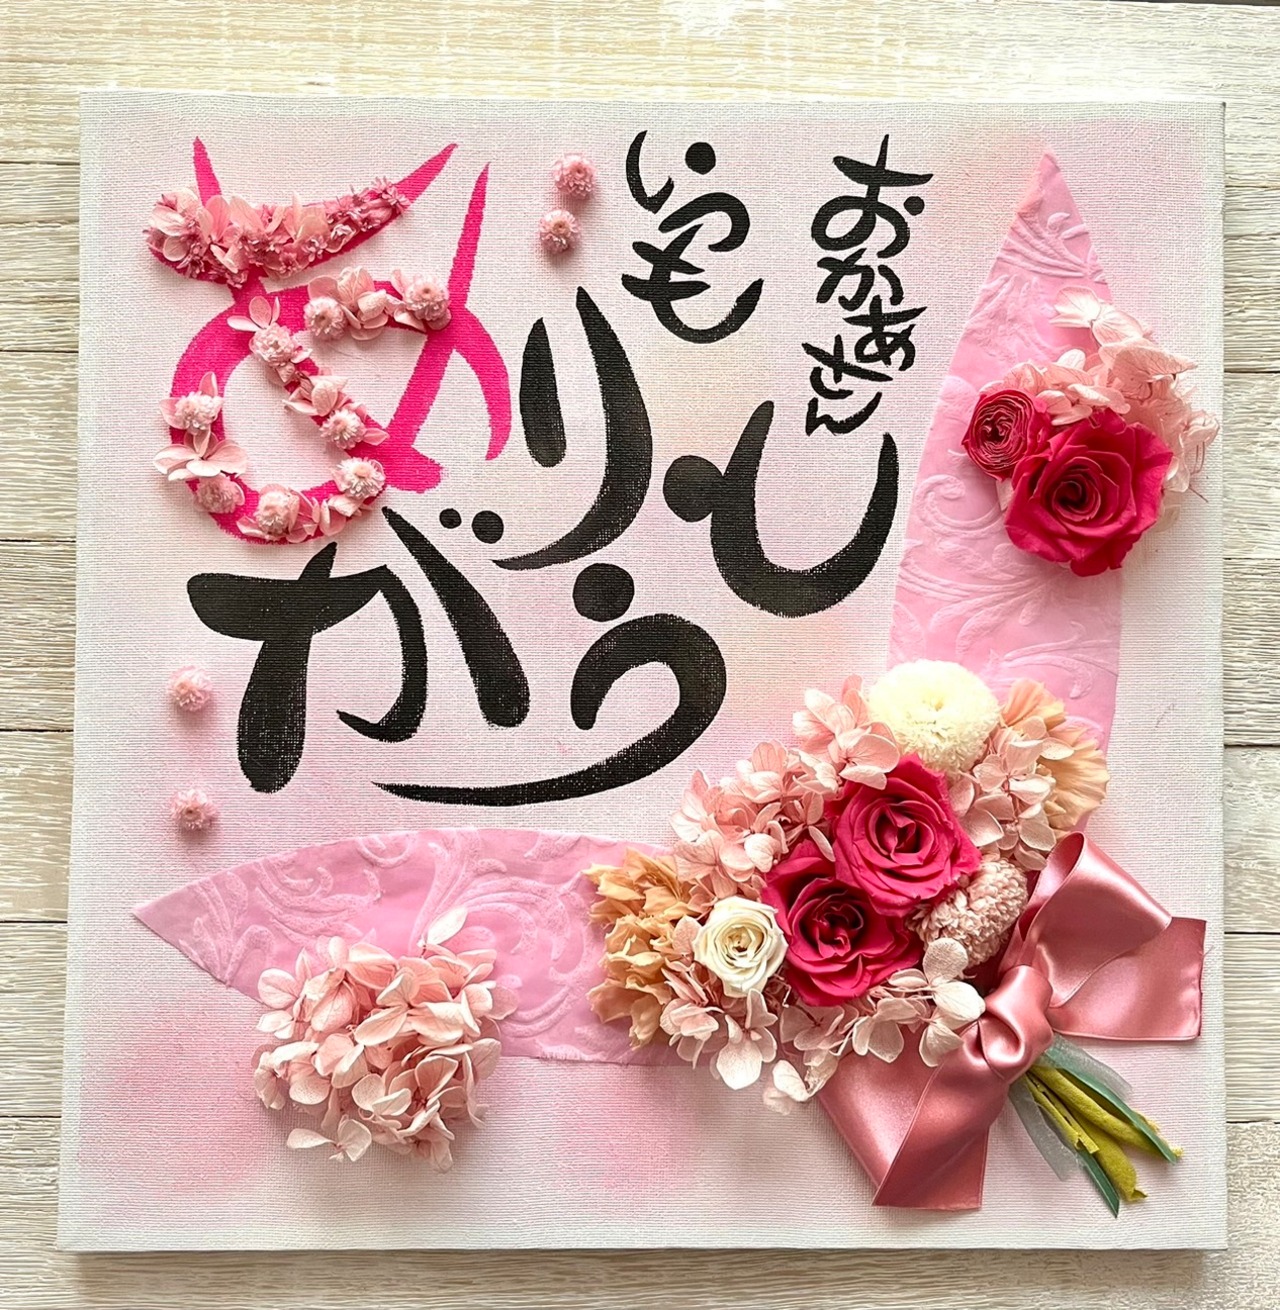 おかあさん
いつも
ありがとう